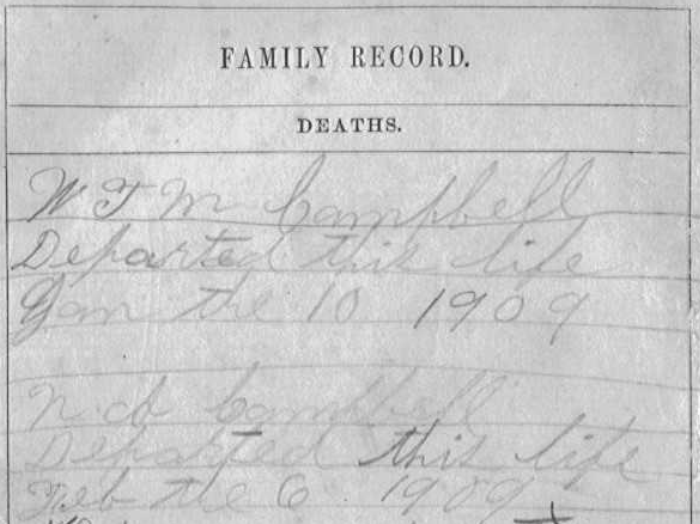 FAMILY RECORD.
DEATHS.
W T M Campbell
Departed this life
Jan the 10 1909
Campbell
Departed this life
Feb the 6 1909